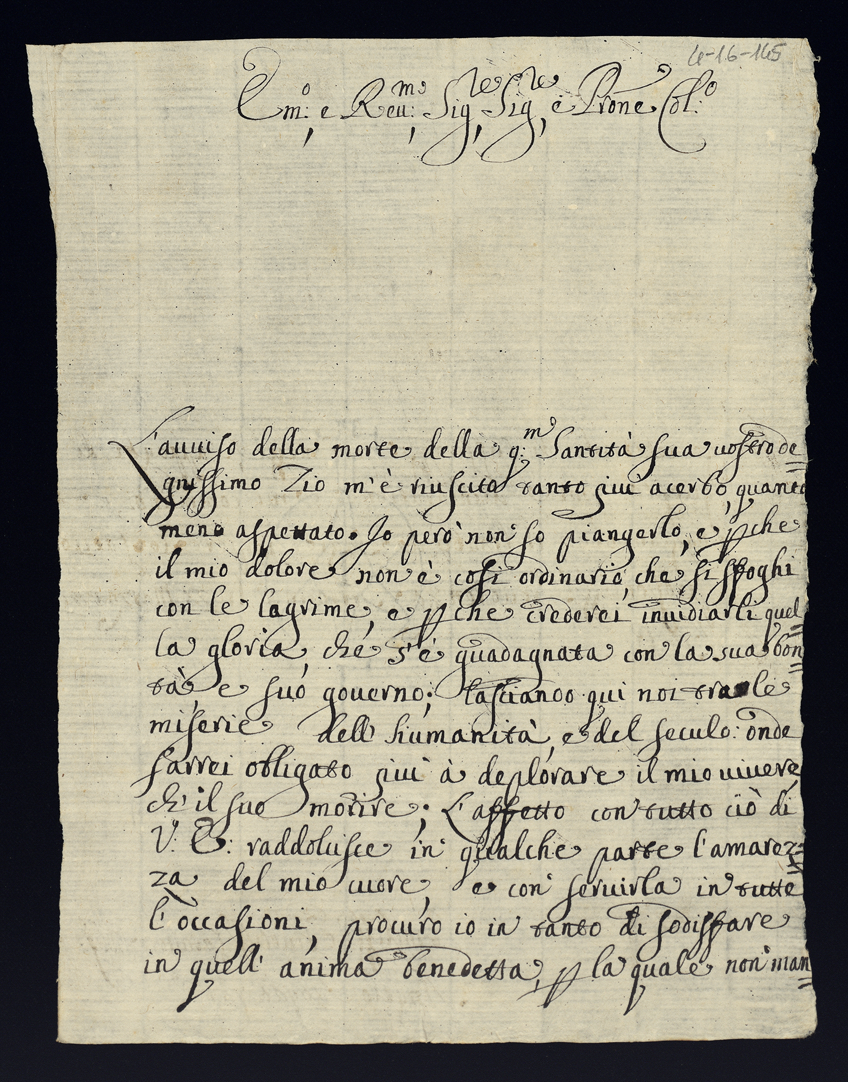 4-16-145
Em:º e Reu:mo Sig.re Sig.re e Prone Col:º
L'auuiso della morte della q:m Santità sua uostro de=
gnissimo Zio m'è riuscito tanto più acerbo, quanto
meno aspettato. Io però non so piangerlo, e p che
il mio dolore non è così ordinario, che si sfoghi
con le lagrime, e p che crederei inuidiarli quel=
la gloria, che s'è guadagnata con la sua bon=
tà e suo gouerno; lasciando qui noi tra le
miserie dell'humanità, e del seculo: onde
sarrei obligato più à deplorare il mio uiuere,
ch'il suo morire; L'affetto con tutto ciò di
V: E: raddolcisce in qualche parte l'amarez=
za del mio cuore, e con seruirla in tutte
l'occasioni, procuro io in tanto di sodisfare
in quell'anima benedetta, p la quale non man=